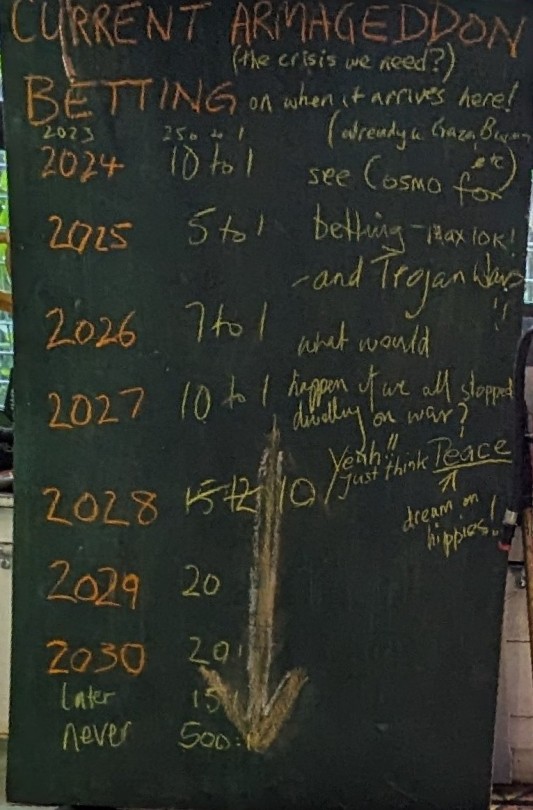 CURRENT ARMAGEDDON
(the crisis we need?)
BETTING on when it arrives here!
2023 250 to 1 (already in Gaza,
2024 10 to 1 etc)
see Cosmo for
2025 5 to 1 betting - Max 10K!
- and Trojan Wars
!!
2026 7 to 1 what would
2027 10 to 1 happen if we all stopped
dwelling on war?
Yeah!! Peace
Just think
2028 15 12 10
dream on
hippies!
2029 20
2030 20
later 15
never 500:1